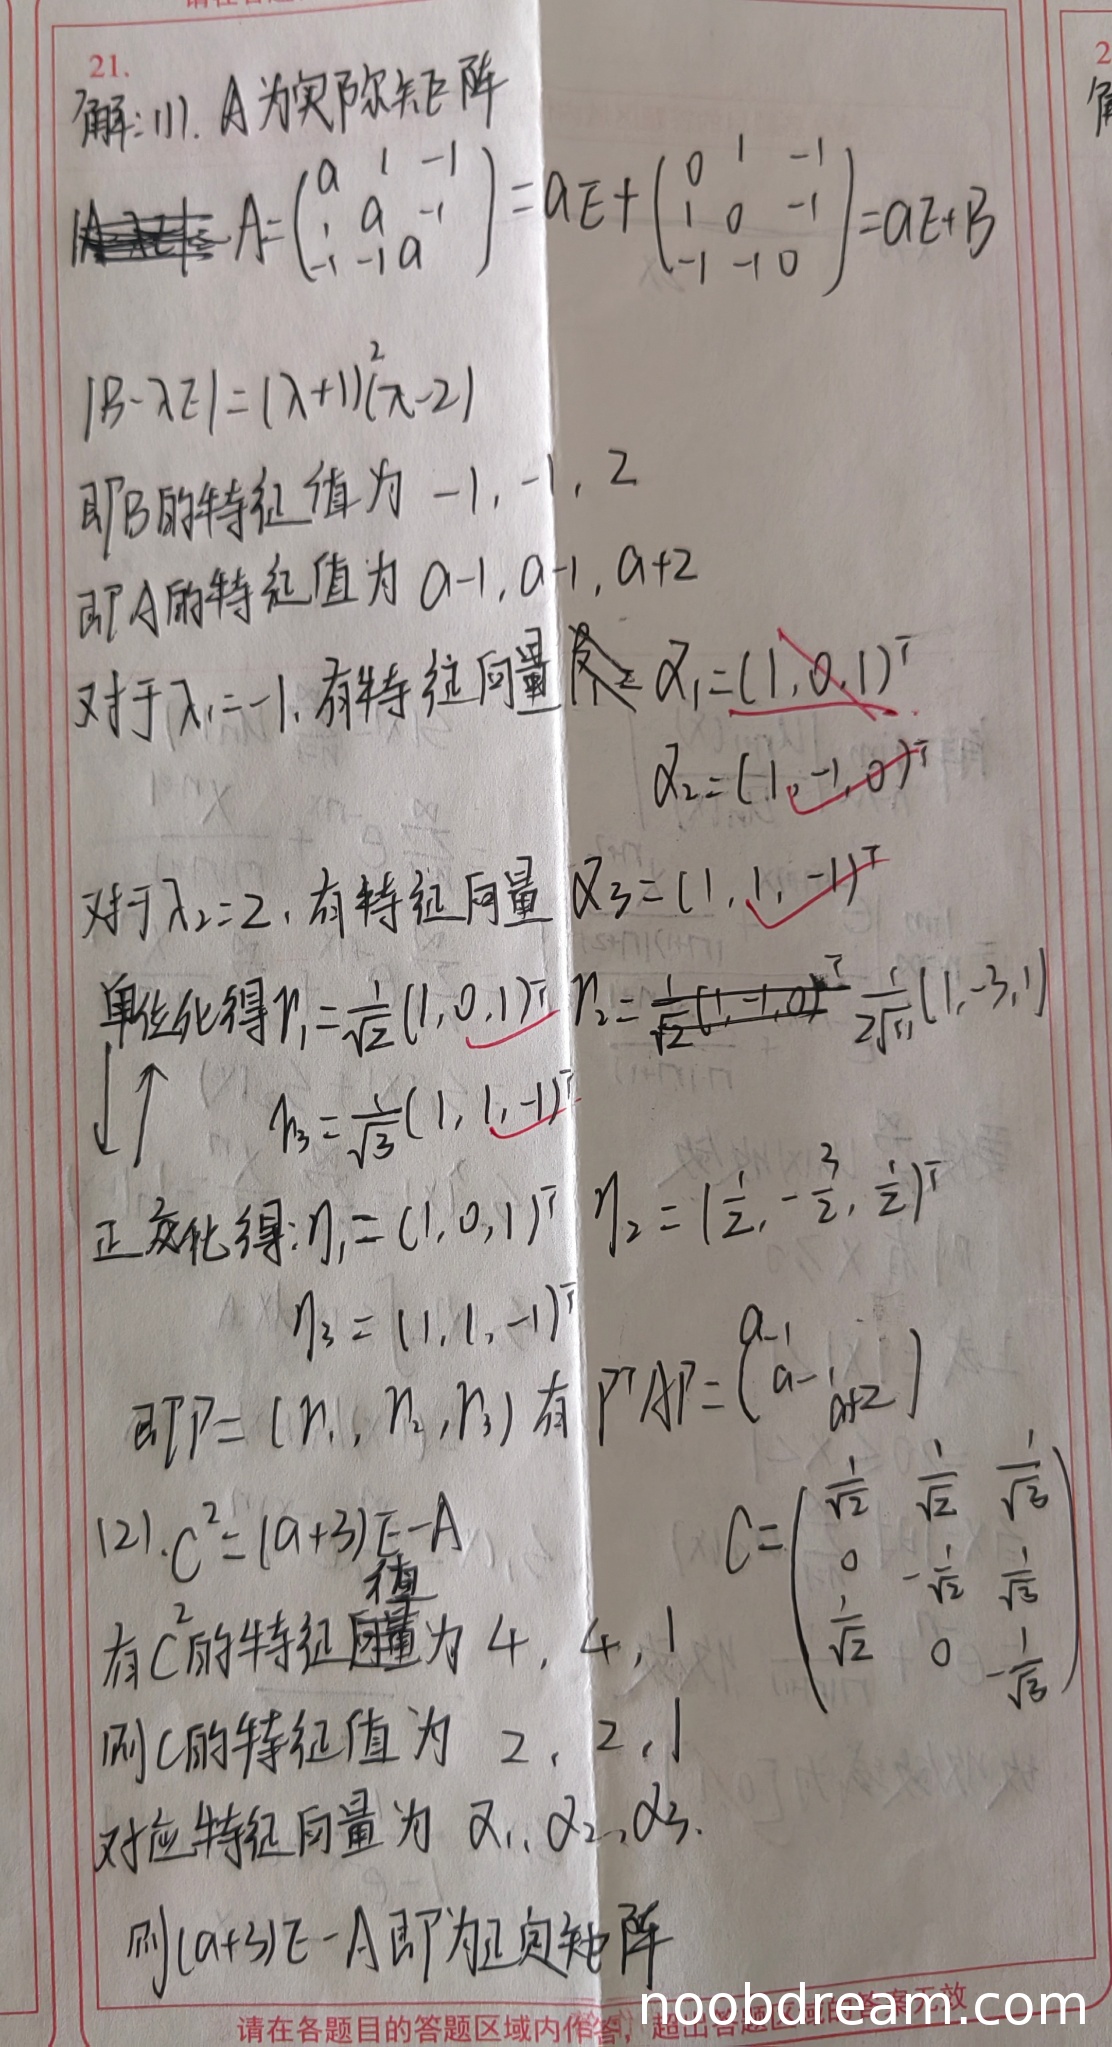 21.
解:(1). A为实对称矩阵
A=(a 1 -1
1 a -1
-1 -1 a)=aE+(0 1 -1
1 0 -1
-1 -1 0)=aE+B
|B-λE|=(λ+1)²(λ-2)
即B的特征值为 -1, -1, 2
即A的特征值为 a-1, a-1, a+2
对于λ₁=-1, 有特征向量 α₁=(1,0,1)ᵀ
α₂=(1,-1,0)ᵀ
对于λ₂=2, 有特征向量 α₃=(1,1,-1)ᵀ
单位化得 r₁=1/√2(1,0,1)ᵀ r₂=1/√2(1,-1,0)ᵀ (1,-3,1)
r₃=1/√3(1,1,-1)ᵀ
正交化得:η₁=(1,0,1)ᵀ η₂=(1/2,-3/2,1/2)ᵀ
η₃=(1,1,-1)ᵀ
即P=(r₁,r₂,r₃) 有PᵀAP=(a-1
a-1
a+2)
(2).C²=(a+3)E-A
C=(1/√2 1/√2 1/√3
0 -1/√2 1/√3
1/√2 0 -1/√3)
有C²的特征值为 4, 4, 1
则C的特征值为 2, 2, 1
对应特征向量为 α₁,α₂,α₃.
则(a+3)E-A即为正定矩阵
请在各题目的答题区域内作答，超出答题区域的答案无效
noobdream.com